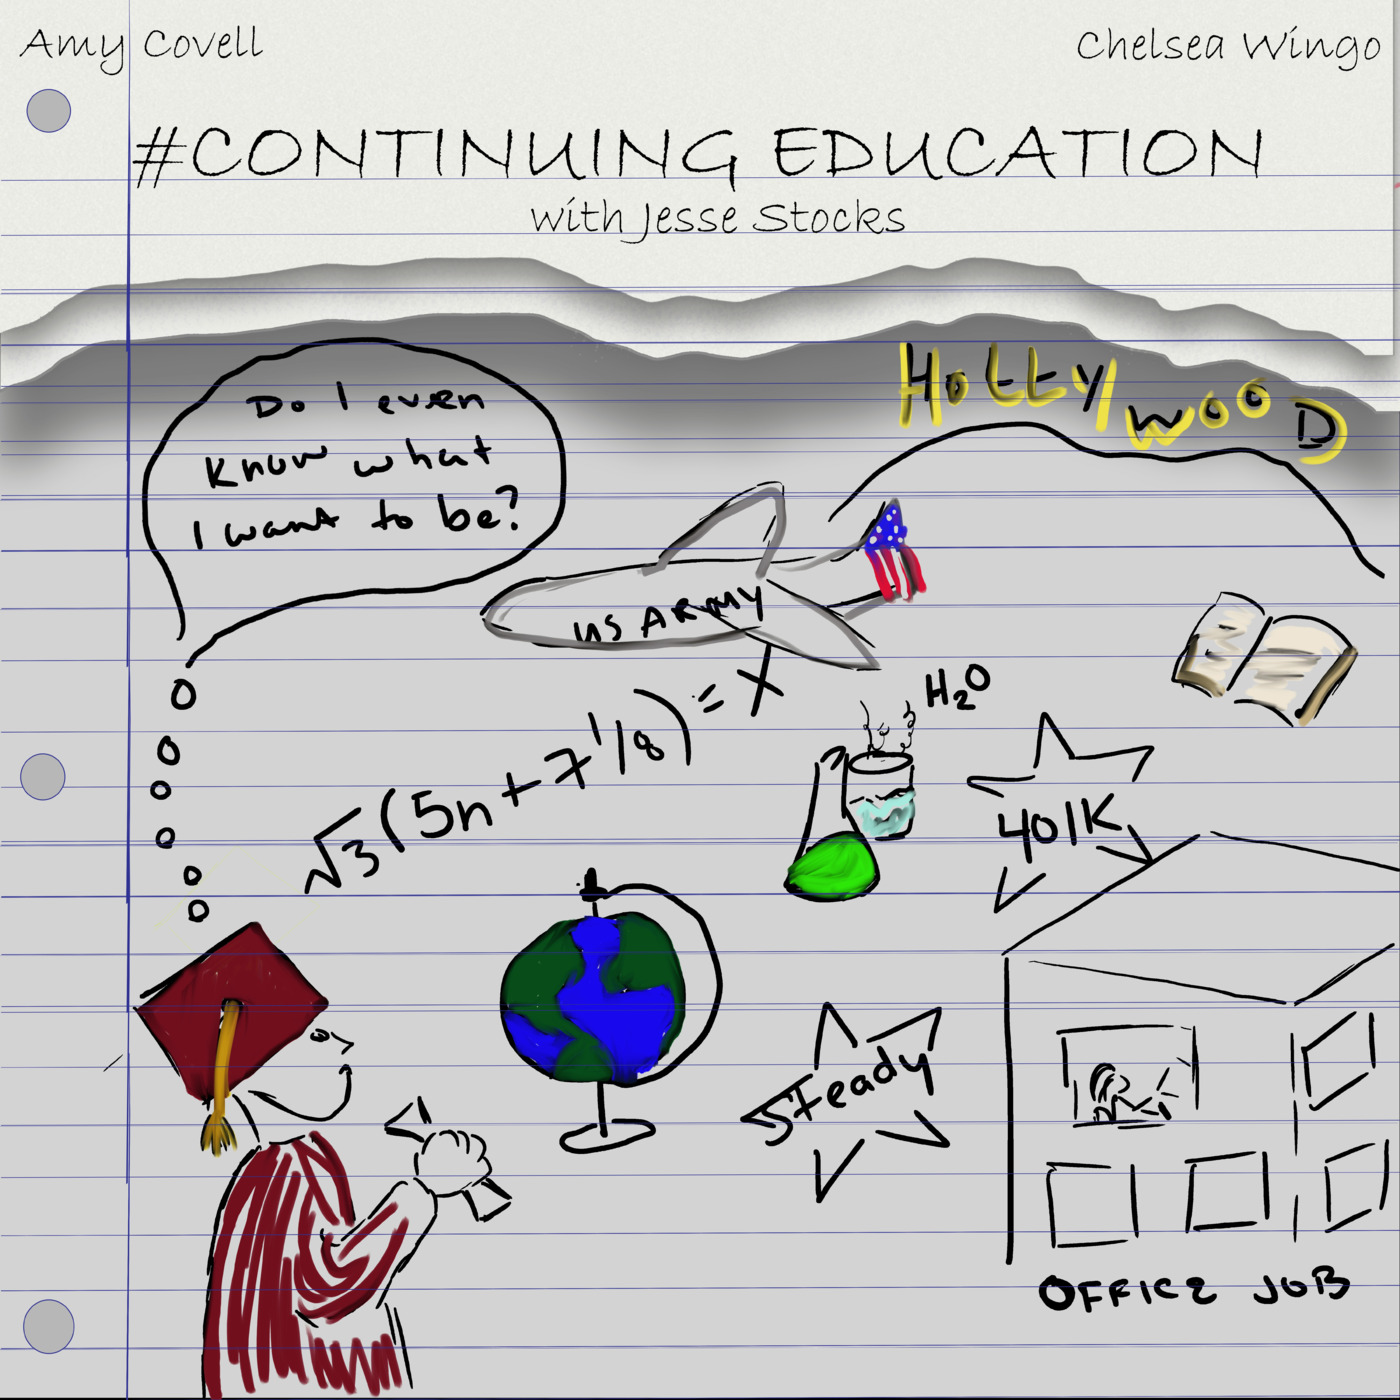 Amy Covell
Chelsea Wingo
#CONTINUING EDUCATION
with Jesse Stocks
Do I even
Know what
I want to be?
HOLLYWOOD
US ARMY
√3(5n+7 1/8) = X
H₂O
401K
Steady
OFFICE JOB